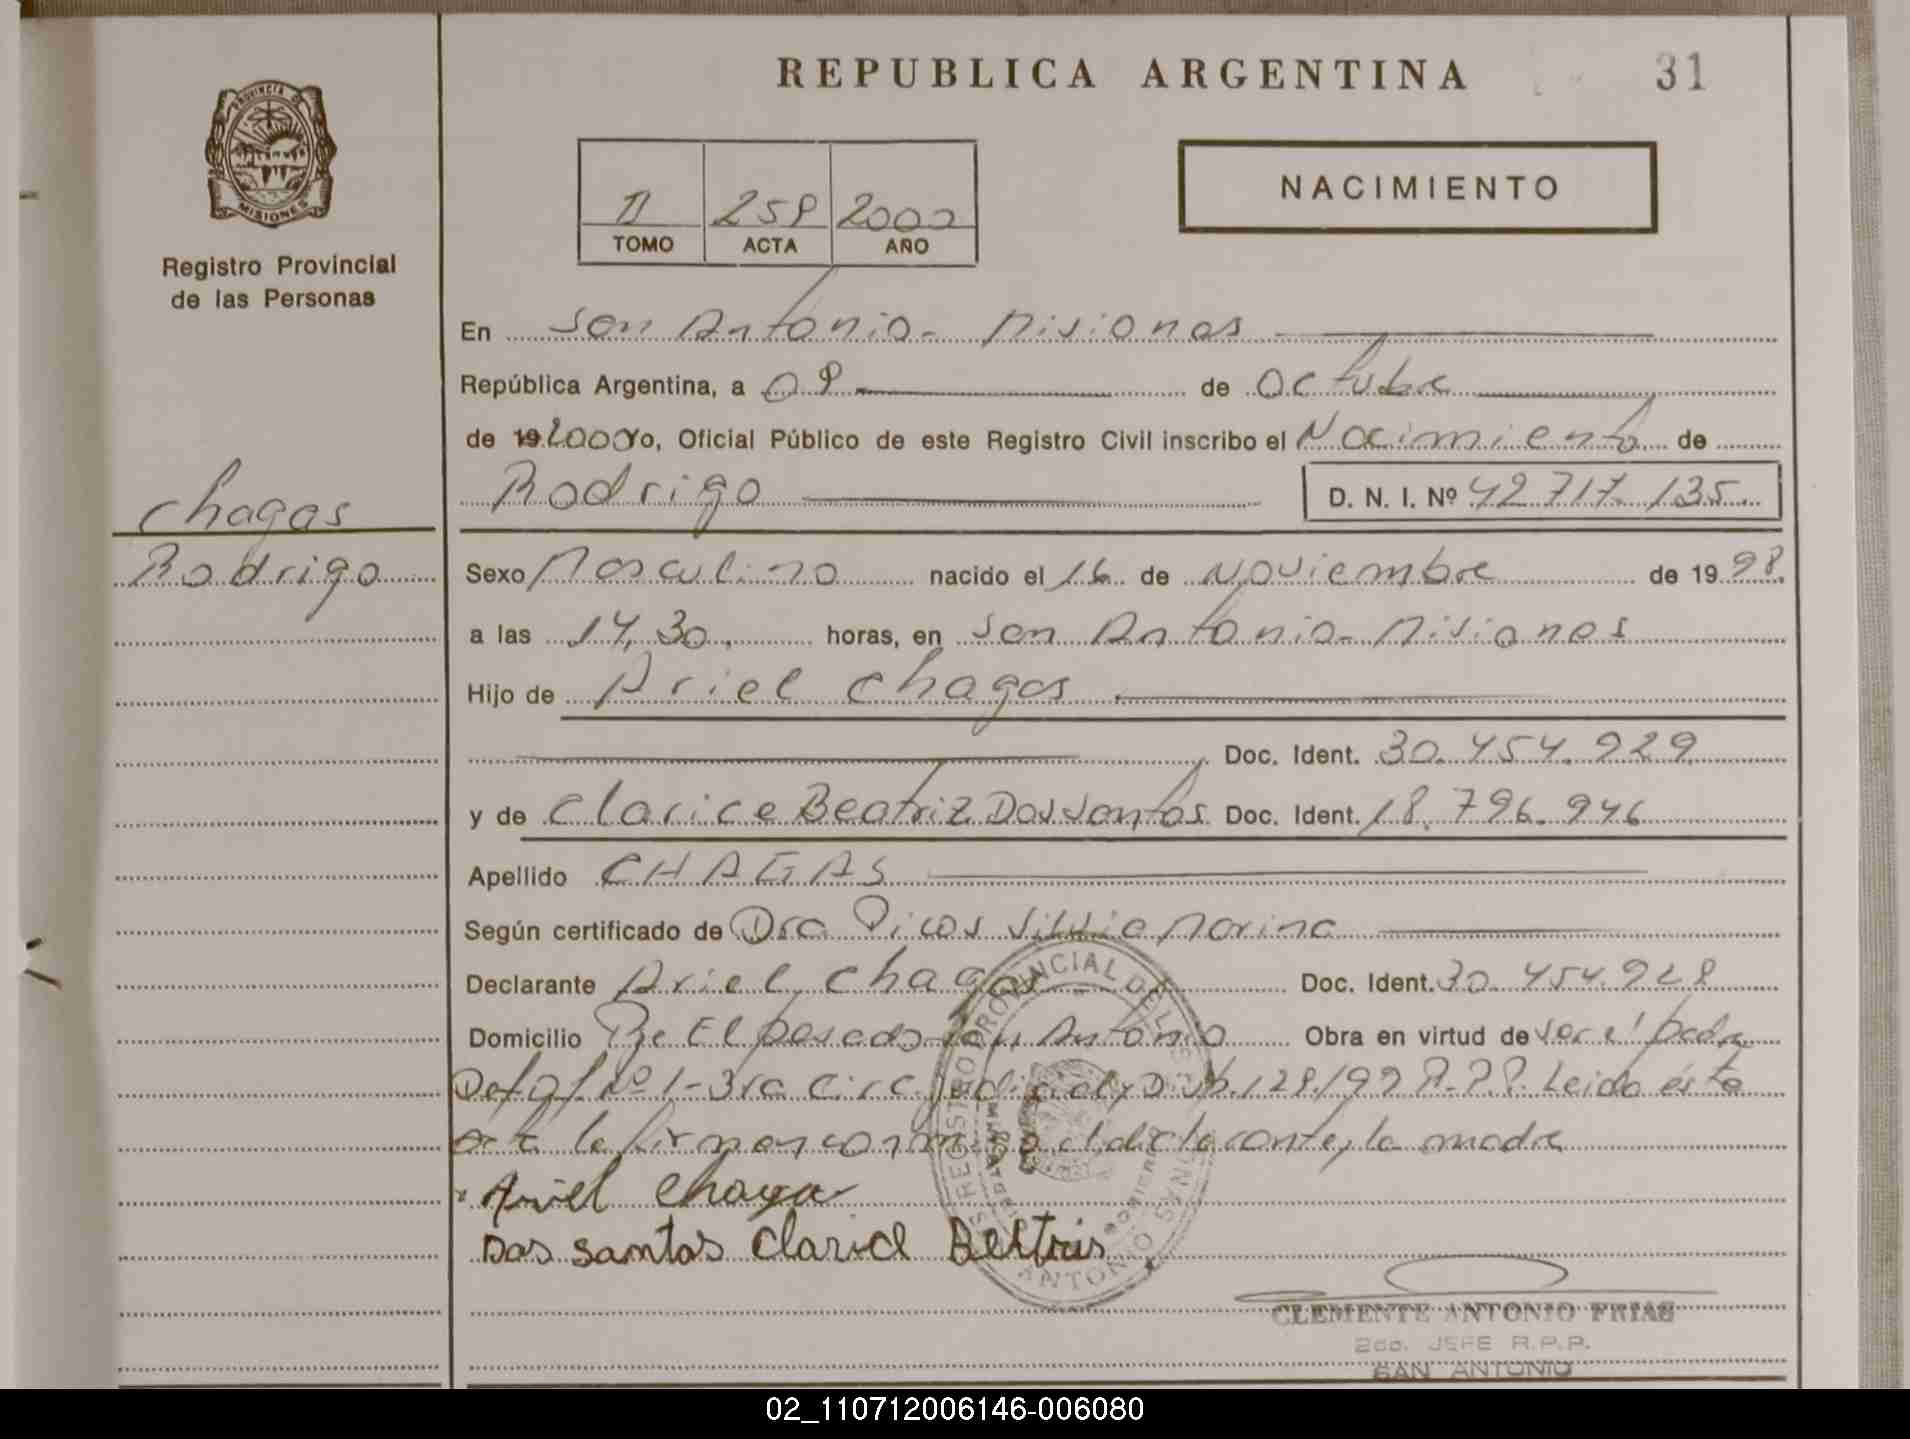 REPUBLICA ARGENTINA
31
PROVINCIA DE
MISIONES
Registro Provincial
de las Personas
TOMO ACTA AÑO
NACIMIENTO
En San Antonio - Misiones
República Argentina, a 09 de Octubre
de 19 2000 Yo, Oficial Público de este Registro Civil inscribo el Nacimiento de
Rodrigo D. N. I. Nº 42 717. 135.
Chagas
Rodrigo
Sexo Masculino nacido el 16 de Noviembre de 19 98.
a las 14,30. horas, en San Antonio - Misiones
Hijo de Ariel Chagas
Doc. Ident. 30.454.929
y de Clarice Beatriz Dos Santos Doc. Ident. 18.796.946
Apellido CHAGAS
Según certificado de Dra Picos Silvia Marina
Declarante Ariel Chagas Doc. Ident. 30.454.928
Domicilio El Posado San Antonio Obra en virtud de ser el padre
Nº 1 - 3ra Circ. Judicial y 128/99 R.P.P. Leida ésta
acta la firman conmigo el declarante y la madre
Ariel Chaga
Dos santos Clarice Beltris
REGISTRO PROVINCIAL DE LAS PERSONAS
SAN ANTONIO
CLEMENTE ANTONIO FRIAS
2do. JEFE R.P.P.
SAN ANTONIO
02_110712006146-006080